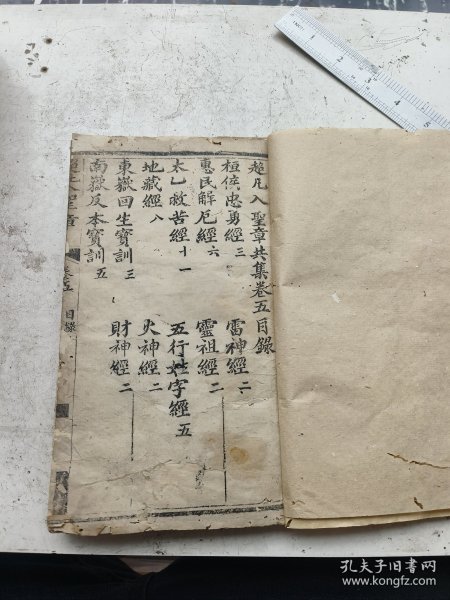 超凡入聖章共集卷五目錄
桓侯忠勇經三
雷神經二
惠民解厄經六
靈祖經二
太乙救苦經十一
五行姓字經五
地藏經八
火神經二
東嶽回生寶訓三
財神經二
南嶽反本寶訓五
卷五 目錄
孔夫子旧书网
www.kongfz.com
1 2 3 4 5